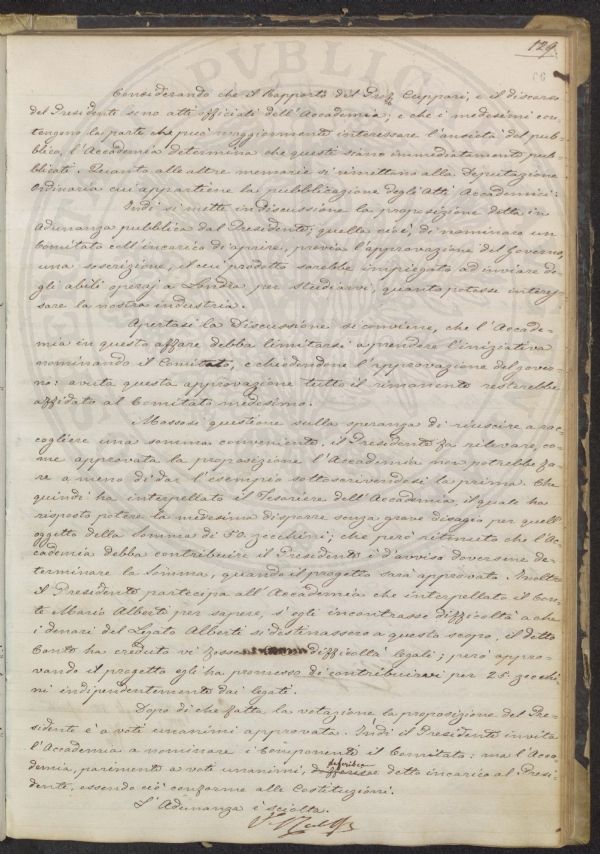 129.
Considerando che il Rapporto del Prof. Cuppari, e il discorso
del Presidente sono atti officiali dell'Accademia; e che i medesimi con-
tengono la parte che può maggiormente interessare l'ansietà del pub-
blico, l'Accademia determina che questi siano immediatamente pub-
blicati. Quanto alle altre memorie si rimettano alla Deputazione
Ordinaria cui appartiene la pubblicazione degli Atti Accademici.
Indi si mette in discussione la proposizione detta in
Adunanza pubblica dal Presidente; quella cioè, di nominare un
Comitato coll'incarico di aprire, previa l'approvazione del Governo,
una soscrizione, il cui prodotto sarebbe impiegato ad inviare de-
gli abili operaj a Londra per studiarvi, quanto potesse interes-
sare la nostra industria.
Apertasi la Discussione si conviene, che l'Accade-
mia in questo affare debba limitarsi a prendere l'iniziativa
nominando il Comitato, e chiedendone l'approvazione del gover-
no: avuta questa approvazione tutto il rimanente resterebbe
affidato al Comitato medesimo.
Mossasi questione sulla speranza di riuscire a rac-
cogliere una somma conveniente, il Presidente fa rilevare, co-
me approvata la proposizione l'Accademia non potrebbe fa-
re a meno di dar l'esempio sottoscrivendosi la prima. Che
quindi ha interpellato il Tesoriere dell'Accademia, il quale ha
risposto potere la medesima disporre senza grave disagio per quell'
oggetto della Somma di 50. zecchini; che però ritenuto che l'Ac-
cademia debba contribuire il Presidente è d'avviso doversene de-
terminare la Somma, quando il progetto sarà approvato. Inoltre
il Presidente partecipa all'Accademia che interpellato il Con-
te Mario Alberti per sapere, s'egli incontrasse difficoltà a che
i denari del Legato Alberti si destinassero a questo scopo, il detto
Conte ha creduto vi fossero difficoltà legali; però appro-
vando il progetto egli ha promesso di contribuirvi per 25 zecchi-
ni indipendentemente dai legati.
Dopo di che fatta la votazione la proposizione del Pre-
sidente è a voti unanimi approvata. Indi il Presidente invita
l'Accademia a nominare i Componenti il Comitato: ma l'Acca-
demia, parimente a voti unanimi, deferisce detto incarico al Presi-
dente, essendo ciò conforme alle Costituzioni.
L'Adunanza è sciolta.